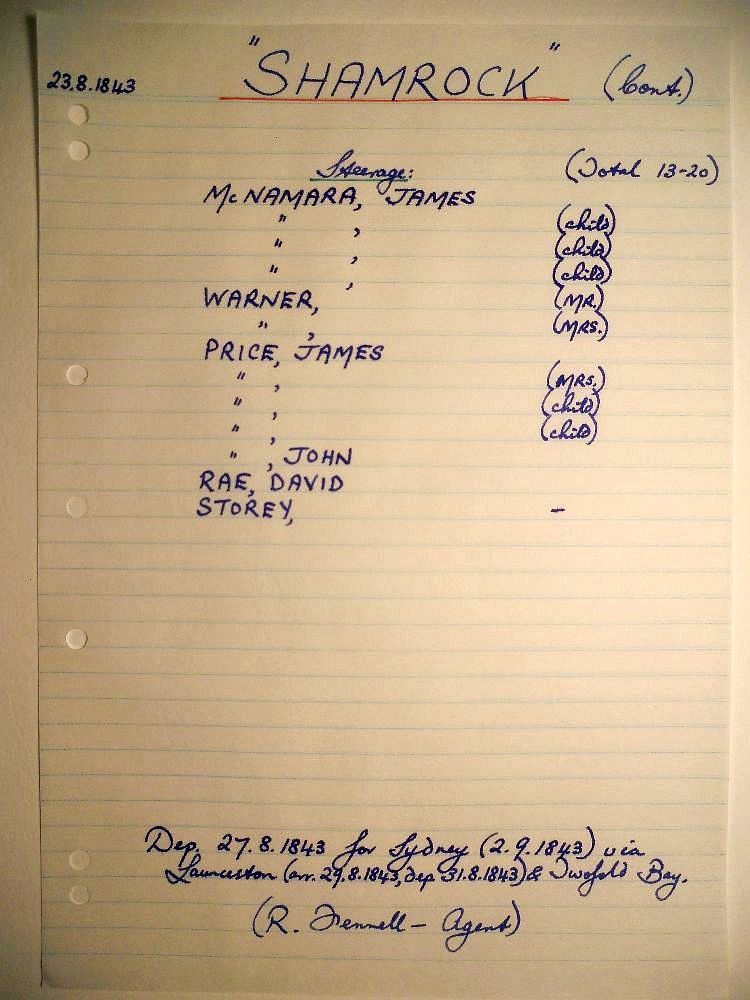 23.8.1843 "SHAMROCK" (Cont.)
Steerage: (Total 13-20)
McNAMARA, JAMES
" , (child)
" , (child)
" , (child)
WARNER, (MR.)
" , (MRS.)
PRICE, JAMES
" , (MRS.)
" , (child)
" , (child)
" , JOHN
RAE, DAVID
STOREY, -
Dep. 27.8.1843 for Sydney (2.9.1843) via
Launceston (arr. 29.8.1843, dep 31.8.1843) & Twofold Bay.
(R. Fennell - Agent)